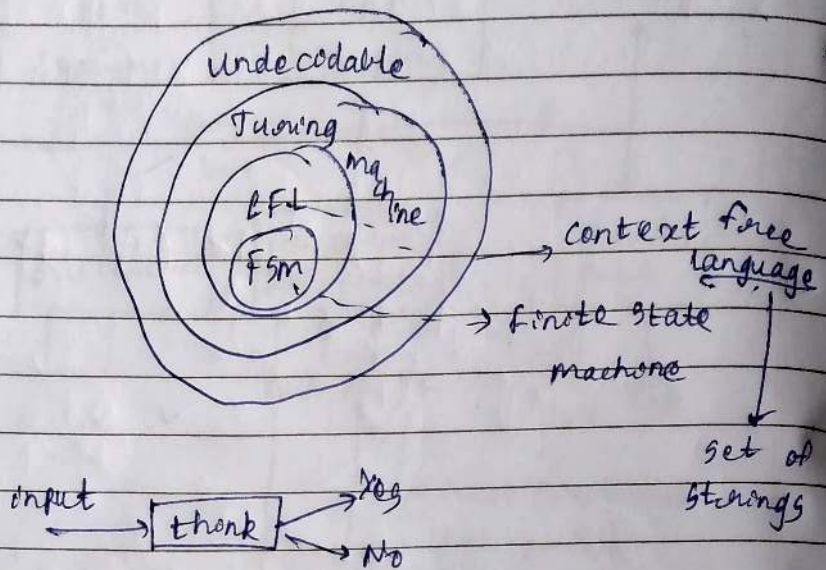 undecodable
Turing
machine
CFL
FSM
context free
language
finite state
machone
set of
strings
input
thonk
Yes
No